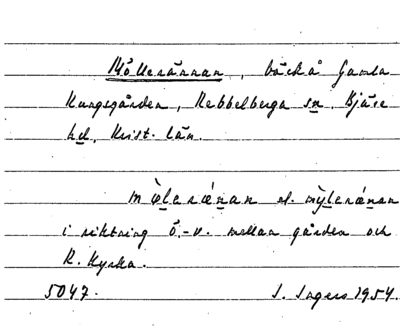 Möllerännan, bäck å Gamla
Kungsgården, Rebbelberga sn, Bjäre
hd, Krist. län.
mø̀lerǽnan el. mỳlerǽnan
i riktning ö.-v. mellan gården och
R. kyrka.
5047. S. Ingers 1954.